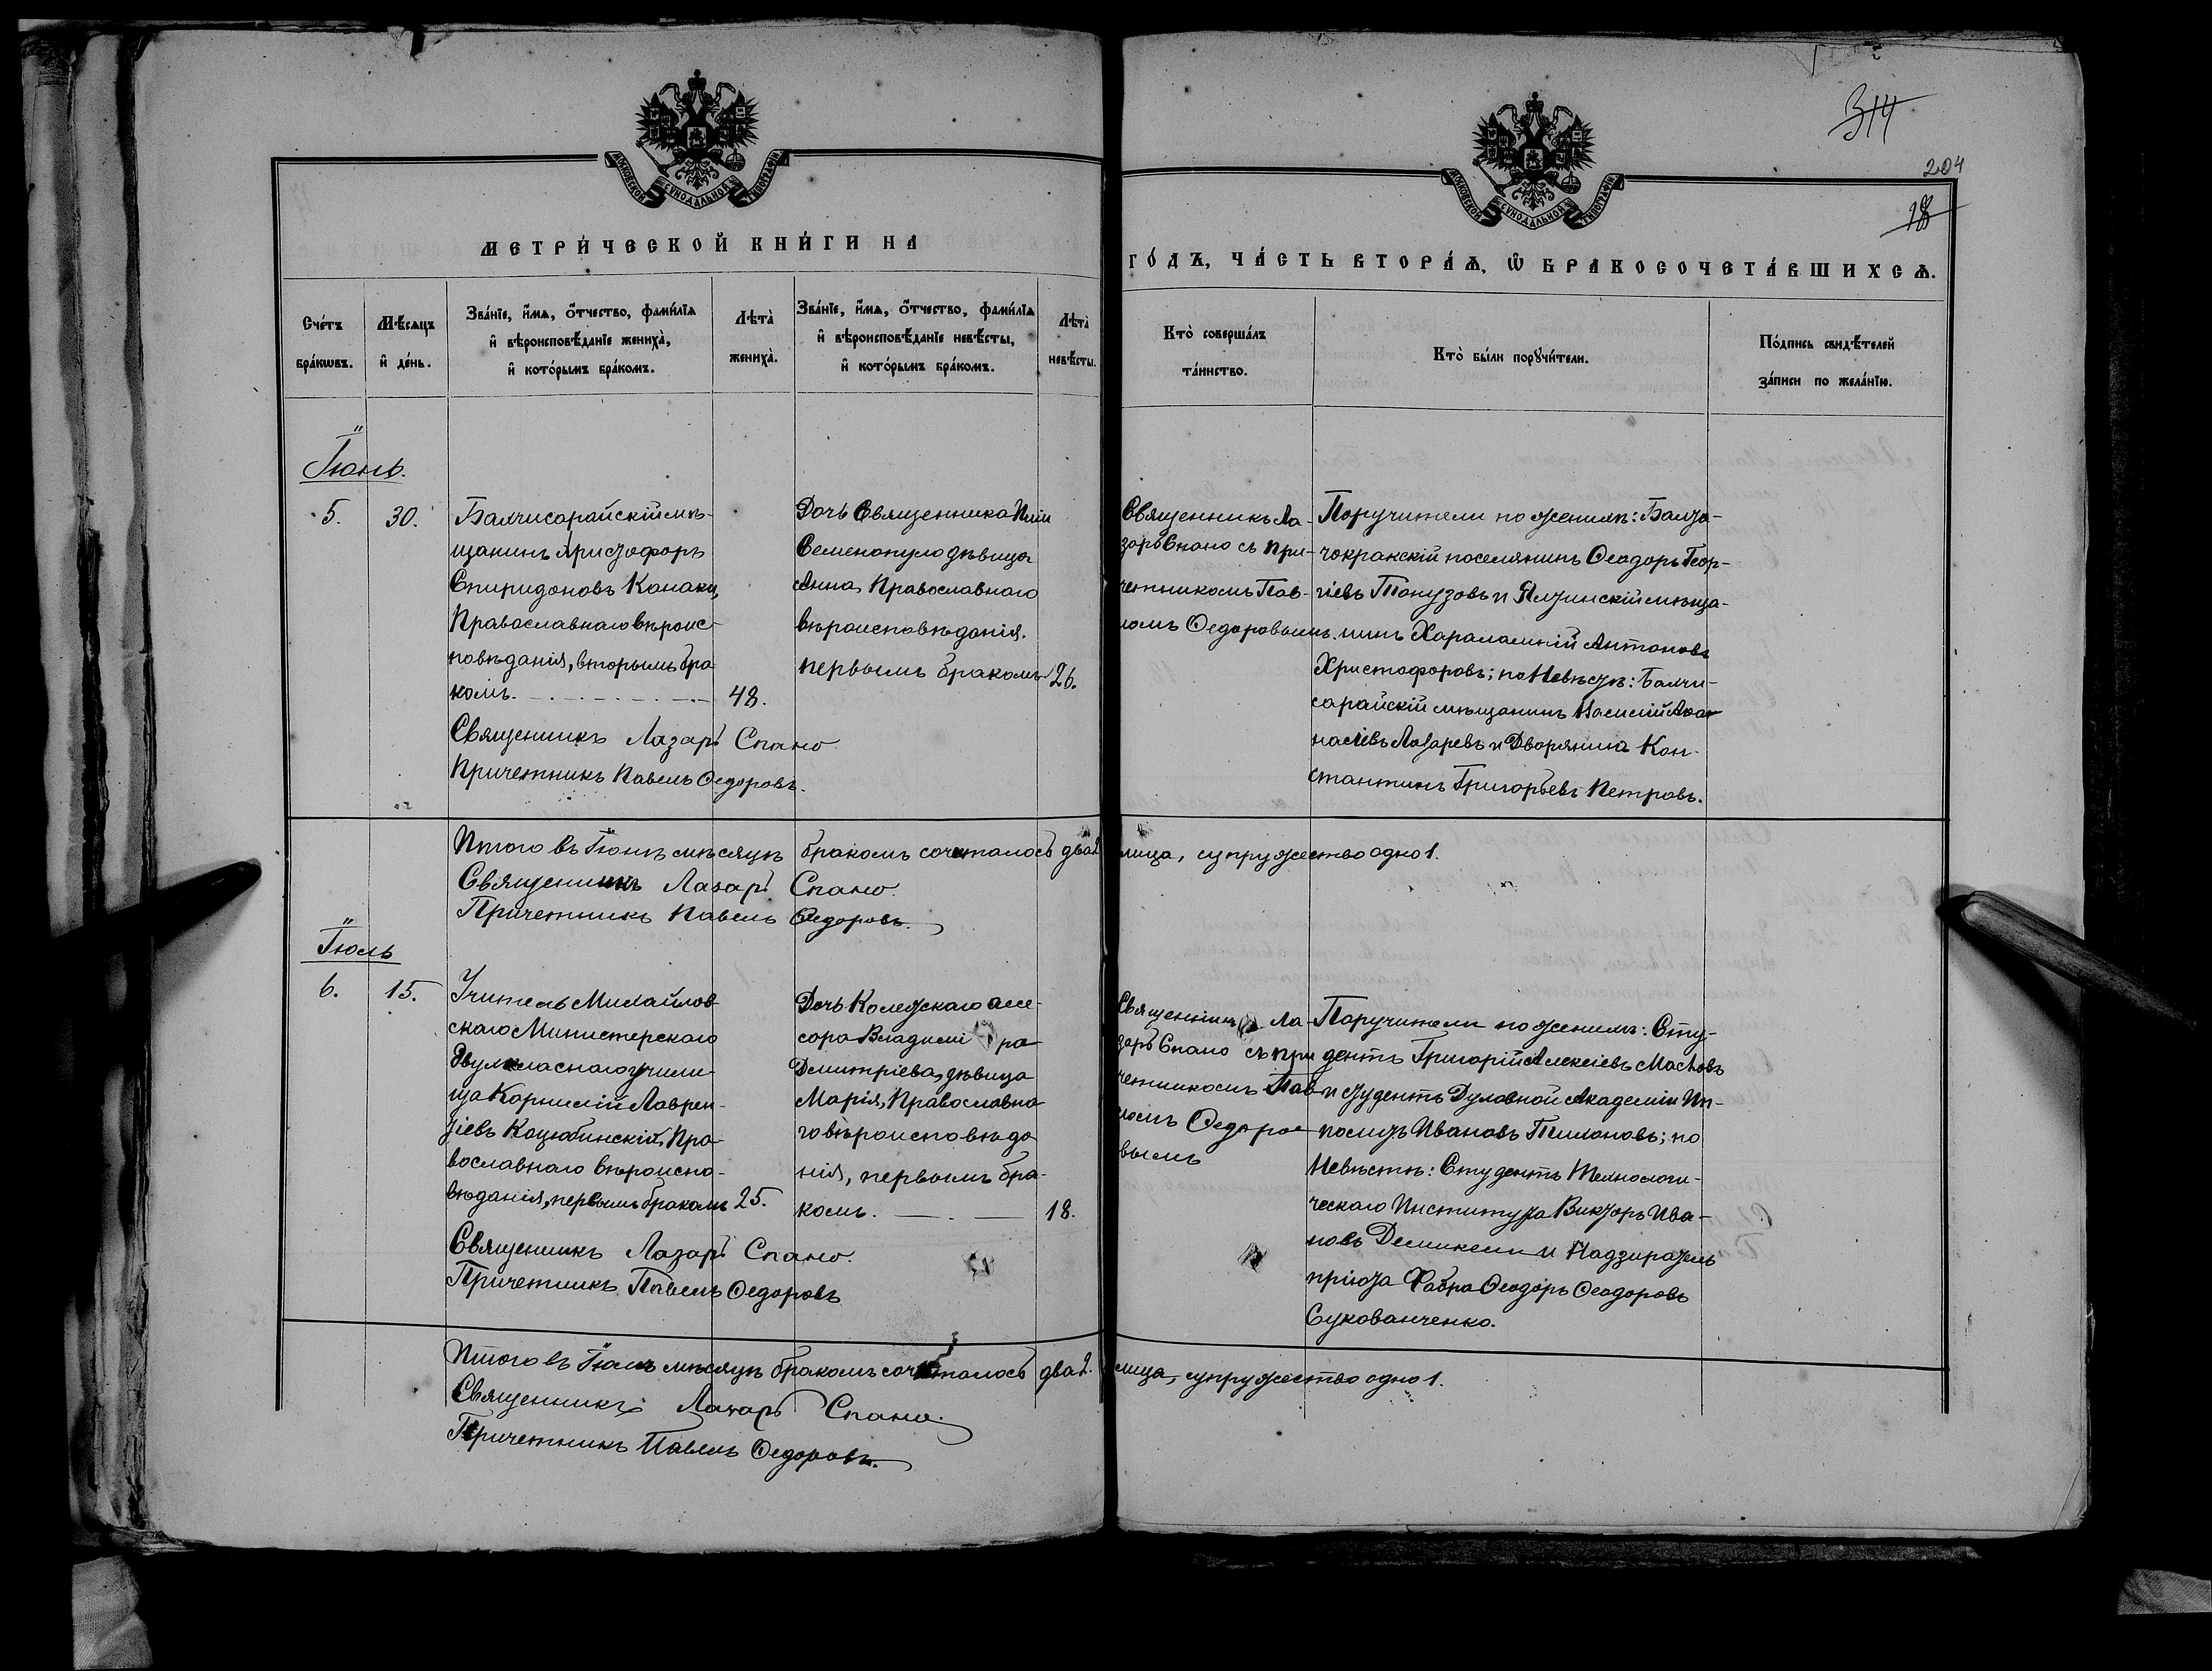 314
204
18
МОСКОВСКОЙ СѴНОДАЛЬНОЙ ТИПОГРАФІИ
МОСКОВСКОЙ СѴНОДАЛЬНОЙ ТИПОГРАФІИ
МЕТРИ́ЧЕСКОЙ КНИ́ГИ НА
ГО́ДЪ, ЧА́СТЬ ВТОРА́Ѧ, Ѿ БРАКОСОЧЕТА́ВШИХСѦ.
Сче́тъ бра́кωвъ.
Мѣ́сяцъ и҆ де́нь.
Зва́нїе, и҆́мѧ, о҆́тчество, фами́лїѧ
и҆ вѣроисповѣ́данїе жениха̀,
и҆ кото́рымъ бра́комъ.
Лѣта̀ жениха̀.
Зва́нїе, и҆́мѧ, о҆́тчество, фами́лїѧ
и҆ вѣроисповѣ́данїе невѣ́сты,
и҆ кото́рымъ бра́комъ.
Лѣта̀ невѣ́сты.
Кто̀ соверша́лъ
та́инство.
Кто̀ бы́ли порꙋчи́тели.
По́дпись свидѣ́телей
за́писи по жела́нїю.
Іюнь.
5.
30.
Бахчисарайскій мѣ-
щанинъ Христофоръ
Спиридоновъ Канаки,
Православнаго вѣроис-
повѣданія, вторымъ бра
комъ.
48.
Священникъ Лазарь Спано
Причетникъ Павелъ Ѳедоровъ.
Дочь Священника Иліи
Семенопуло дѣвица
Анна, Православнаго
вѣроисповѣданія.
первымъ бракомъ
26.
Священникъ Ла-
зарь Спано съ при-
четникомъ Пав-
ломъ Ѳедоровымъ.
Поручители по женихѣ:
чокракскій поселянинъ Ѳеодоръ Геор-
гіевъ Топузовъ и Ялтинскій мѣща-
нинъ Харалампій Антоновъ
Христофоровъ; по Невѣстѣ: Бахчи-
сарайскій мѣщанинъ Василій Аѳа-
насіевъ Лазаревъ и Дворянинъ Кон-
стантинъ Григорьевъ Петровъ.
Итого въ Іюнѣ мѣсяцѣ бракомъ сочеталось два 2 лица, супружество одно 1.
Священникъ Лазарь Спано.
Причетникъ Павелъ Ѳедоровъ.
Іюль
6.
15.
Учитель Михайлов
скаго Министерскаго
двухкласнаго учили-
ща Корнилій Лаврен-
тіевъ Коцюбинскій, Пра-
вославнаго вѣроиспо-
вѣданія, первымъ бракомъ
25.
Священникъ Лазарь Спано.
Причетникъ Павелъ Ѳедоровъ
Дочь Колежскаго асе-
сора Владимі ра
Дмитріева, дѣвица
Марія, Православна
го вѣроисповѣда
нія, первымъ бра-
комъ.
18.
Священникъ Ла-
зарь Спано съ при
четникомъ Пав
ломъ Ѳедоро
вымъ
Поручители по женихѣ: Сту-
дентъ Григорій Алексіевъ Масловъ
и студентъ Духовной Академіи Ип-
политъ Ивановъ Тихоновъ; по
Невѣстѣ: Студентъ Технологи-
ческаго Института Викторъ Ива-
новъ и Надзиратель
пріюта Фабра Ѳеодоръ Ѳеодоровъ
Сукованченко.
Итого въ Іюлѣ мѣсяцѣ бракомъ сочеталось два 2. лица, супружество одно 1.
Священникъ Лазарь Спано.
Причетникъ Павелъ Ѳедоровъ.